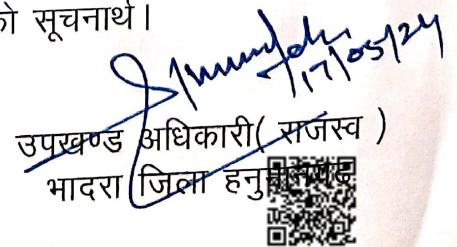 को सूचनार्थ।
17/05/24
उपखण्ड अधिकारी( राजस्व )
भादरा जिला हनुमानगढ